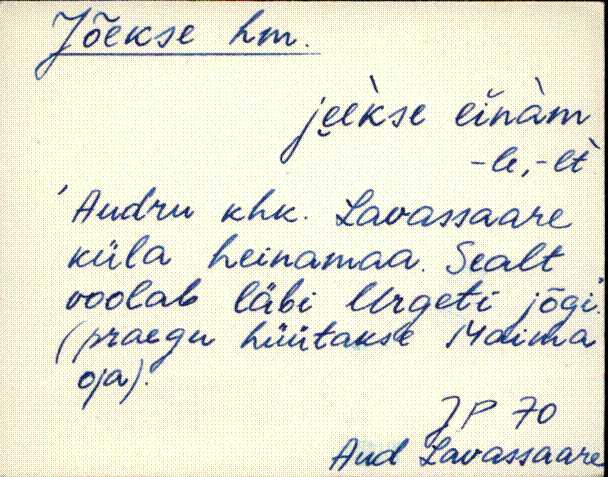 Jõekse hm.
je̬ėkse ei̬nàm
-le, -lt
Audru khk. Lavassaare
küla heinamaa. Sealt
voolab läbi Urgeti jõgi.
(praegu hüütakse Maima
oja).
JP 70
Aud Lavassaare